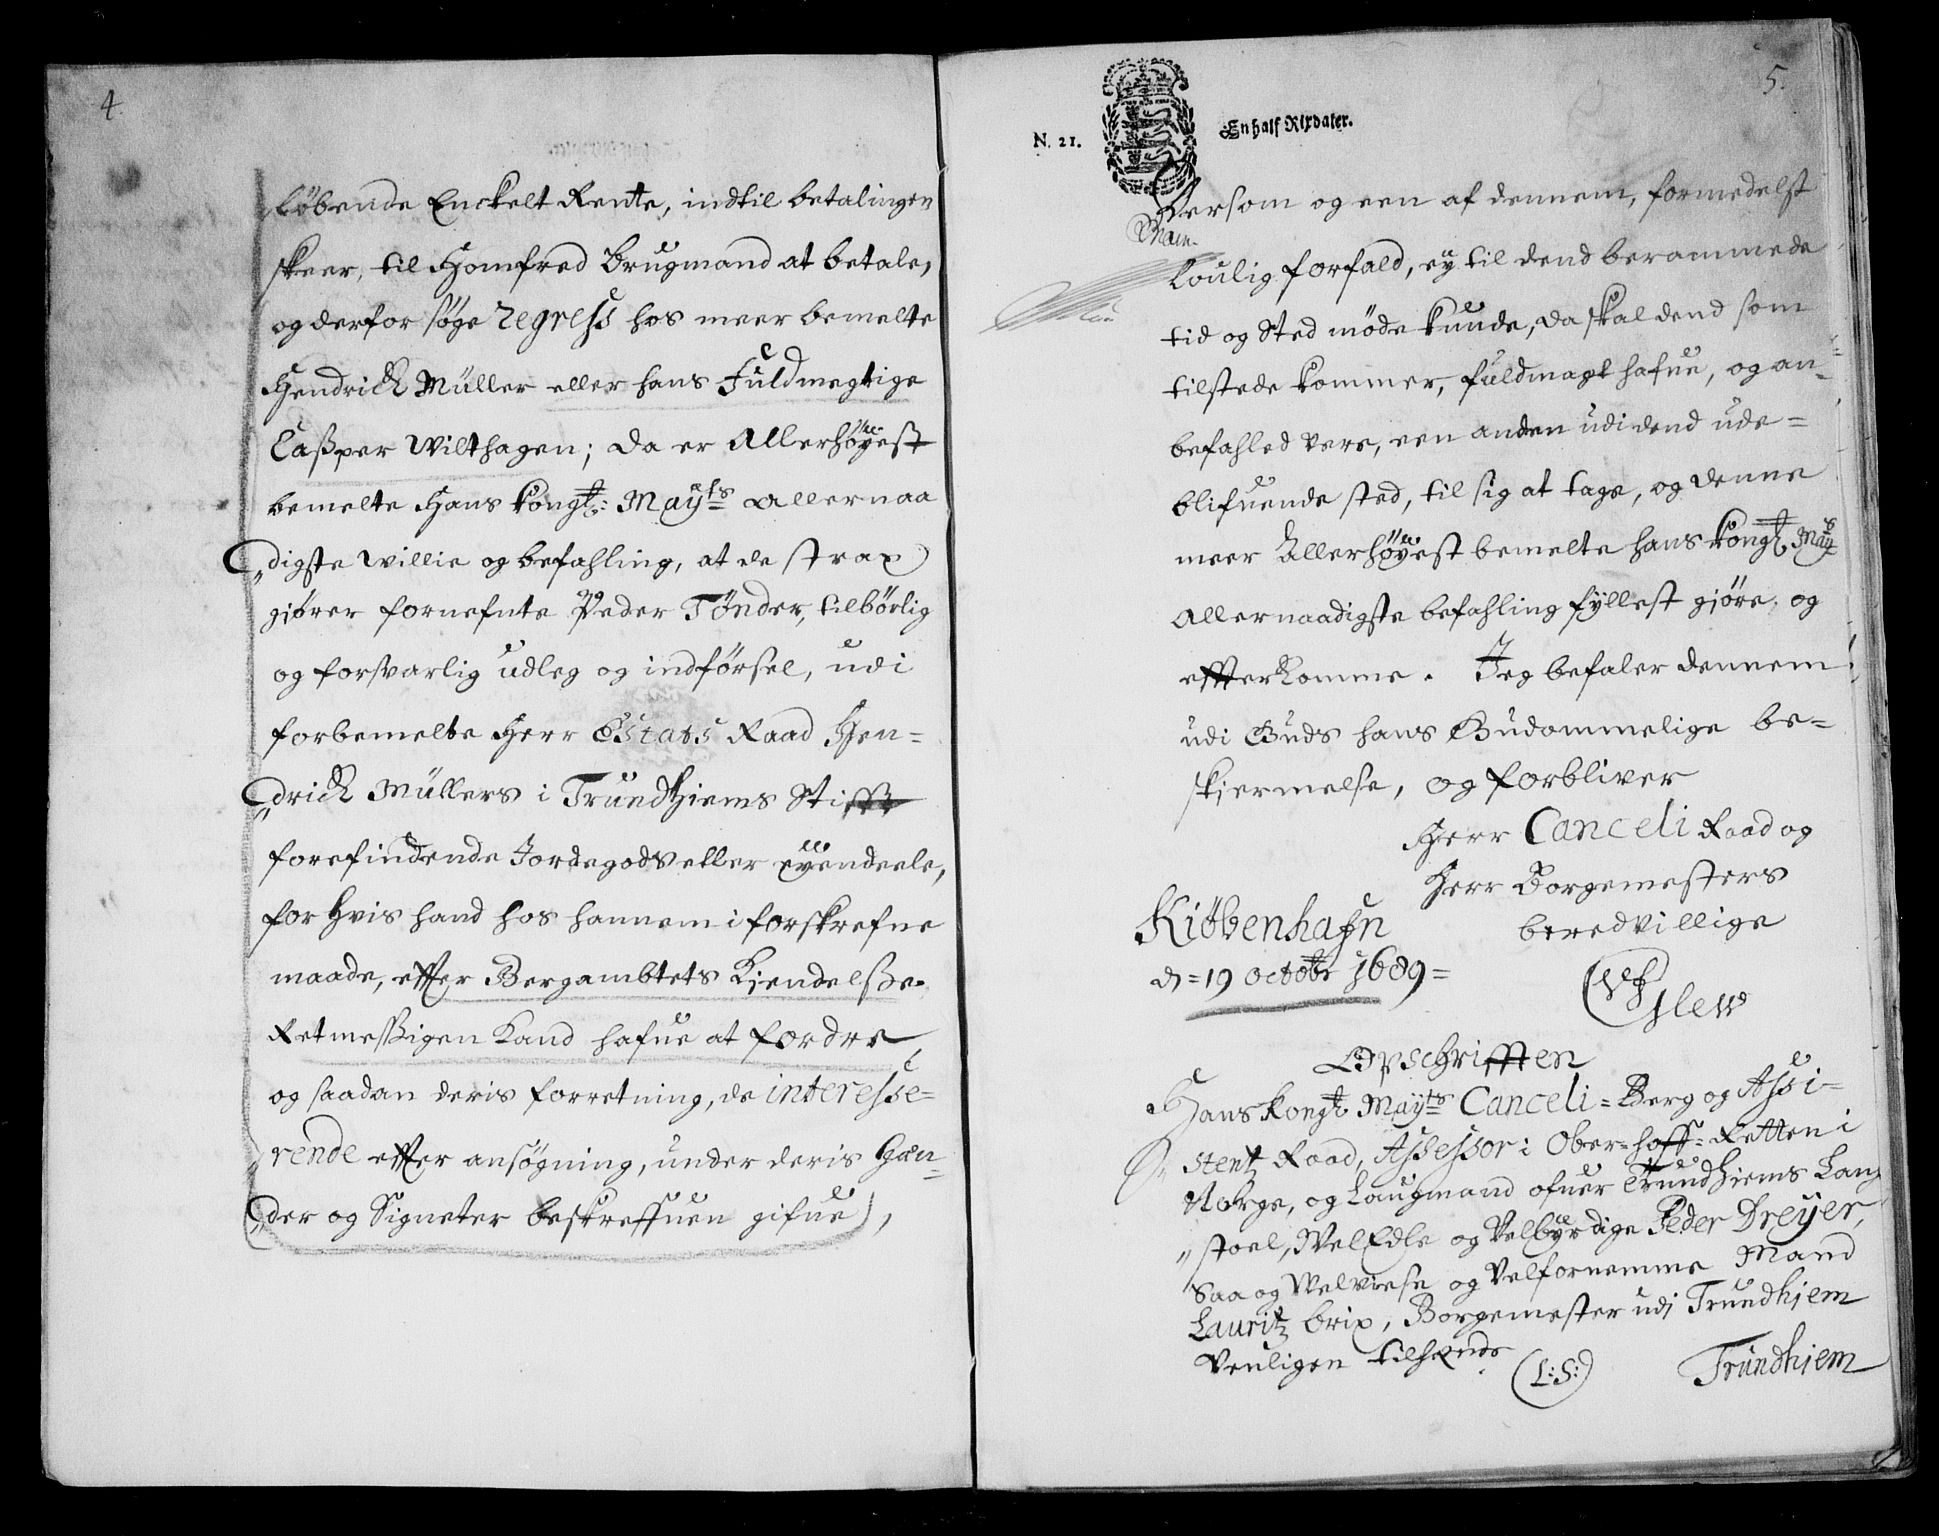 4.
løbende Enckelt Rente, indtil betalingen
skeer, til Homfred Brugmand at betale,
og derfor søge regress hos meer bemelte
Hendrich Müller eller hans Fuldmegtige
Casper Wilthagen; da er Allerhøyest
bemelte Hans Kongl: Mayts allernaa
digste willie og befahling, at de strax
giører fornefnte Peder Tønder, tilbørlig
og forsvarlig udleg og indførsel, udi
forbemelte Herr Estats Raad Hen=
drich Müllers i Trundhiems Stifft
forefindende Jordegods eller eyendeele,
for hvis hand hos hannem i forskrefne
maade, effter Bergambtets Kiendelße
Retmeßigen kand hafue at fordre,
og saadan deris forretning, de interesse=
rende effter ansøgning, under deris Hæn=
der og Signeter beskreffuen gifue,
5.
N. 21. En half Rixdaler.
Dersom og een af dennem, formedelst
loulig forfald, ey til dend berammede
tid og Sted møde kunde, da skal dend som
tilstede kommer, fuldmagt hafue, og an=
befahled vere, een anden udi dend ude=
blifuende sted, til sig at tage, og denne
meer Allerhøyest bemelte hans Kongl Mays
Allernaadigste befahling fyllest giøre, og
effterkomme. Jeg befaler dennem
udi Guds hans Gudommelige be=
skiermelse, og forbliver
Herr Canceli Raad og
Herr Borgemesters
beredvillige
Kiøbenhafn
d= 19 octobr 1689=
Opschrifften
Hans Kongl Mayts Canceli= Berg og Assi=
stentz Raad, Assessor i Ober=hoff=Retten i
Norge, og Laugmand ofuer Trundhiems Laug
stoel, WelEdle og Velbyrdige Peder Dreyer,
Saa og Welviese og Velfornemme Mand
Lauritz Brix, Borgemester udi Trundhiem
Venligen tilhænde
(L:S:) Trundhiem